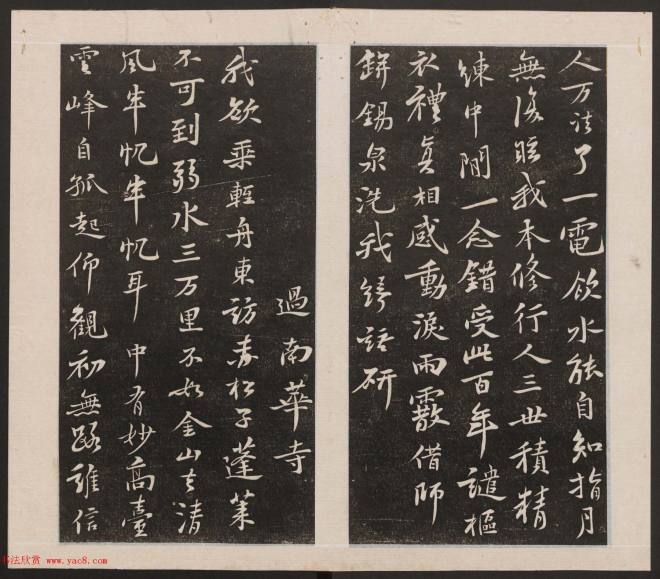 人万法了一電飲水能自知指月
無復眩我本修行人三世積精
練中間一念錯受此百年譴摳
衣禮真相感動淚雨霰借師
錫泉洗我綺語研
過南華寺
我欲乘輕舟東訪赤松子蓬萊
不可到弱水三万里不如金山去清
風半帆半帆耳中有妙高臺
雲峰自孤起仰觀初無路誰信
书法欣赏 www.yac8.com